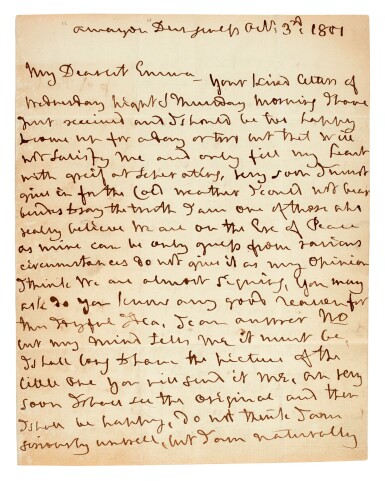 Amazon Dungeness Octr: 3rd: 1801
My Dearest Emma
Your kind letters of
Wednesday night & Thursday morning I have
just received and I should be too happy
to come up for a day or two but that will
not satisfy me and only fill my heart
with grief at separating, very soon I must
give in for the Cold weather I cannot not bear
besides to say the truth I am one of those who
really believe we are on the Eve of Peace
as mine can be only guess from various
circumstances do not give it as my opinion
I think we are almost signing, You may
ask do you know any good reason for
this Idea, I can answer No
but my mind tells me it must be,
I shall long to have the picture of the
little one you will send it me, but very
soon I shall see the original and then
I shall be happy, do not think I am
seriously unwell, but I am naturally